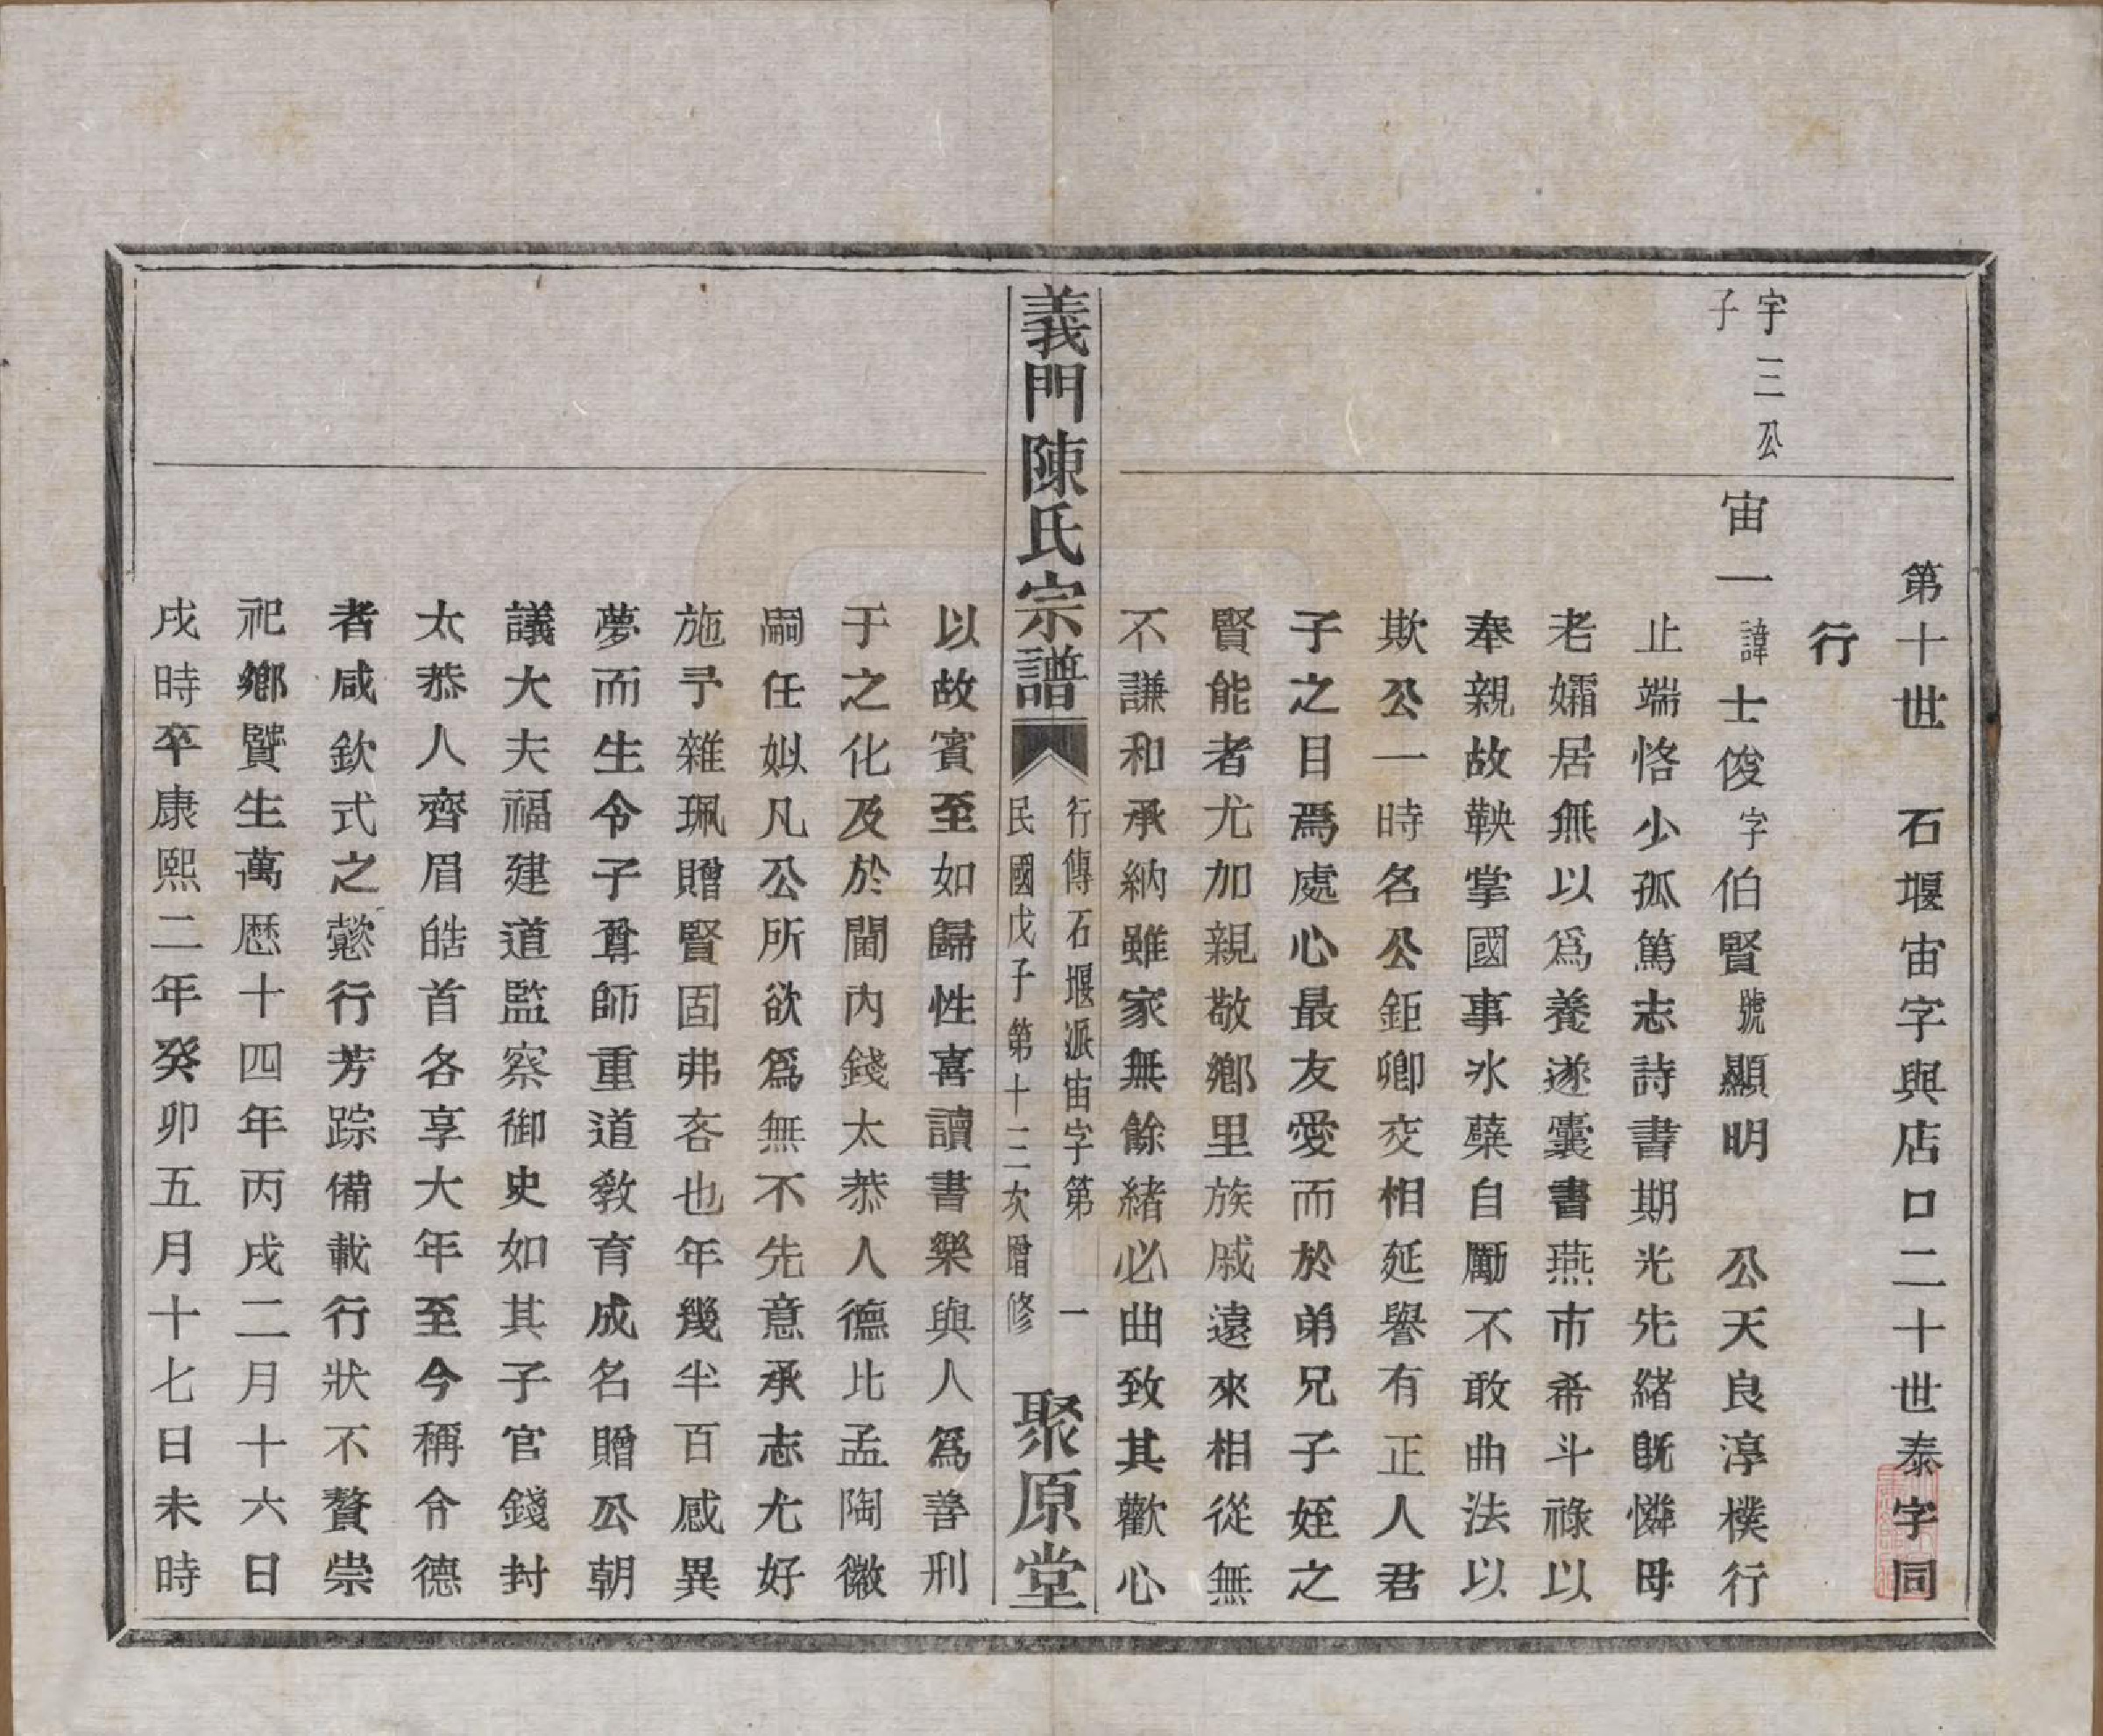 第十世　石堰宙字與店口二十世泰字同
行
宇三公
子
宙一諱士俊字伯賢號顯明　公天良淳樸行
止端恪少孤篤志詩書期光先緒旣憐母
老孀居無以爲養遂囊書燕市希斗祿以
奉親故鞅掌國事氷蘗自勵不敢曲法以
欺公一時名公鉅卿交相延譽有正人君
子之目焉處心最友愛而於弟兄子姪之
賢能者尤加親敬鄉里族戚遠來相從無
不謙和承納雖家無餘緒必曲致其歡心
義門陳氏宗譜
行傳石堰派宙字第　一
民國戊子第十二次增修
聚原堂
以故賓至如歸性喜讀書樂與人爲善刑
于之化及於閫內錢太恭人德比孟陶徽
嗣任姒凡公所欲爲無不先意承志尤好
施予雜珮贈賢固弗吝也年幾半百感異
夢而生令子尊師重道敎育成名贈公朝
議大夫福建道監察御史如其子官錢封
太恭人齊眉皓首各享大年至今稱令德
者咸欽式之懿行芳踪備載行狀不贅崇
祀鄉賢生萬歷十四年丙戌二月十六日
戌時卒康熙二年癸卯五月十七日未時